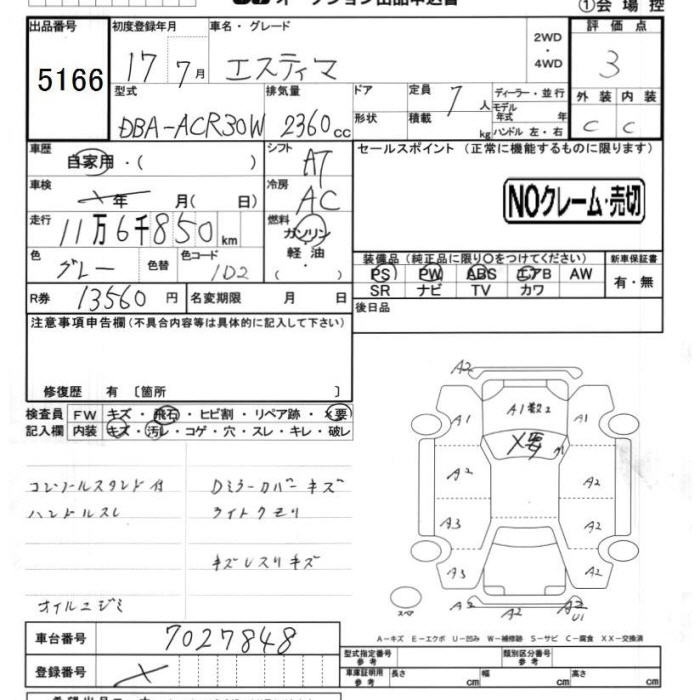 オークション出品申込書
①会場控
出品番号 初度登録年月 車名・グレード 2WD・4WD 評価点
5166 17 7月 エスティマ 3
型式 排気量 ドア 定員 7人 ディーラー・並行 外装 内装
DBA-ACR30W 2360cc 形状 積載 kg モデル年式 年 C C
ハンドル 左・右
車歴 自家用・( ) シフト AT セールスポイント (正常に機能するものに限ります)
車検 年 月( 日) 冷房 AC NOクレーム・売切
走行 11万6千850km 燃料 ガソリン 軽油・( )
色 グレー 色替 色コード 1D2
装備品(純正品に限り○をつけてください) 新車保証書
PS PW ABS エアB AW 有・無
SR ナビ TV カワ
R券 13560円 名変期限 月 日 後日品
注意事項申告欄(不具合内容等は具体的に記入して下さい)
修復歴 有 〔箇所 〕
検査員 FW キズ・飛石・ヒビ割・リペア跡・×要
記入欄 内装 キズ・汚レ・コゲ・穴・スレ・キレ・破レ
コンソールスタンド付 Dミラーカバーキズ
ハンドルスレ ライトクモリ
オイルニジミ
A2
A1 A1 A1
×要
A2 A2
A3 A2
A3 A2
スペア A2 A2 U1
A-キズ E-エクボ U-凹み W-補修跡 S-サビ C-腐食 XX-交換済
車台番号 7027848
登録番号
型式指定番号 参考 類別区分番号 参考
車庫証明用 参考 長さ cm 幅 cm 高さ cm